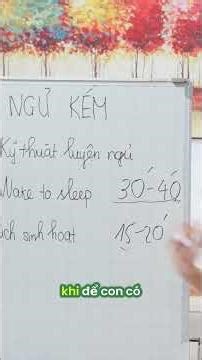 NGỦ KÉM
Kỹ thuật luyện ngủ
Wake to sleep 30'-40'
ịch sinh hoạt 15'-20'
khi để con có